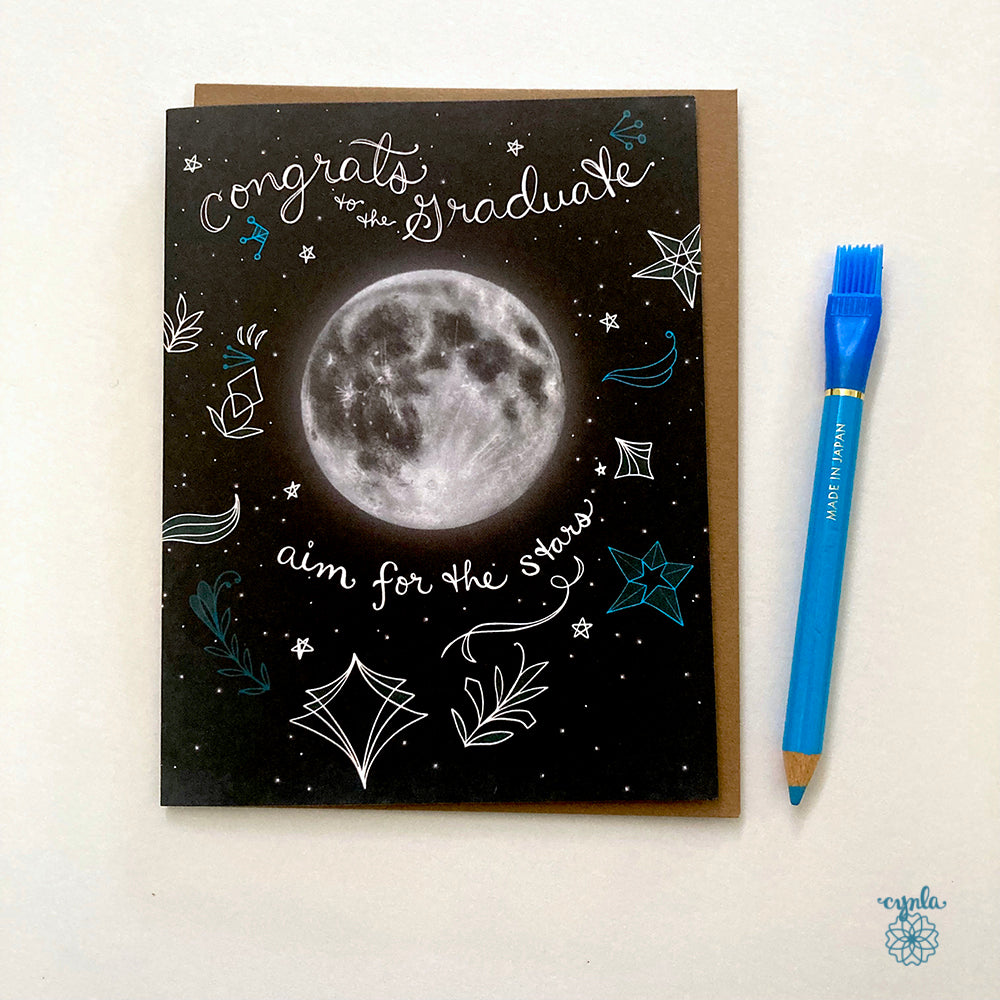 Congrats
to the graduate
aim for the stars
MADE IN JAPAN
cynla